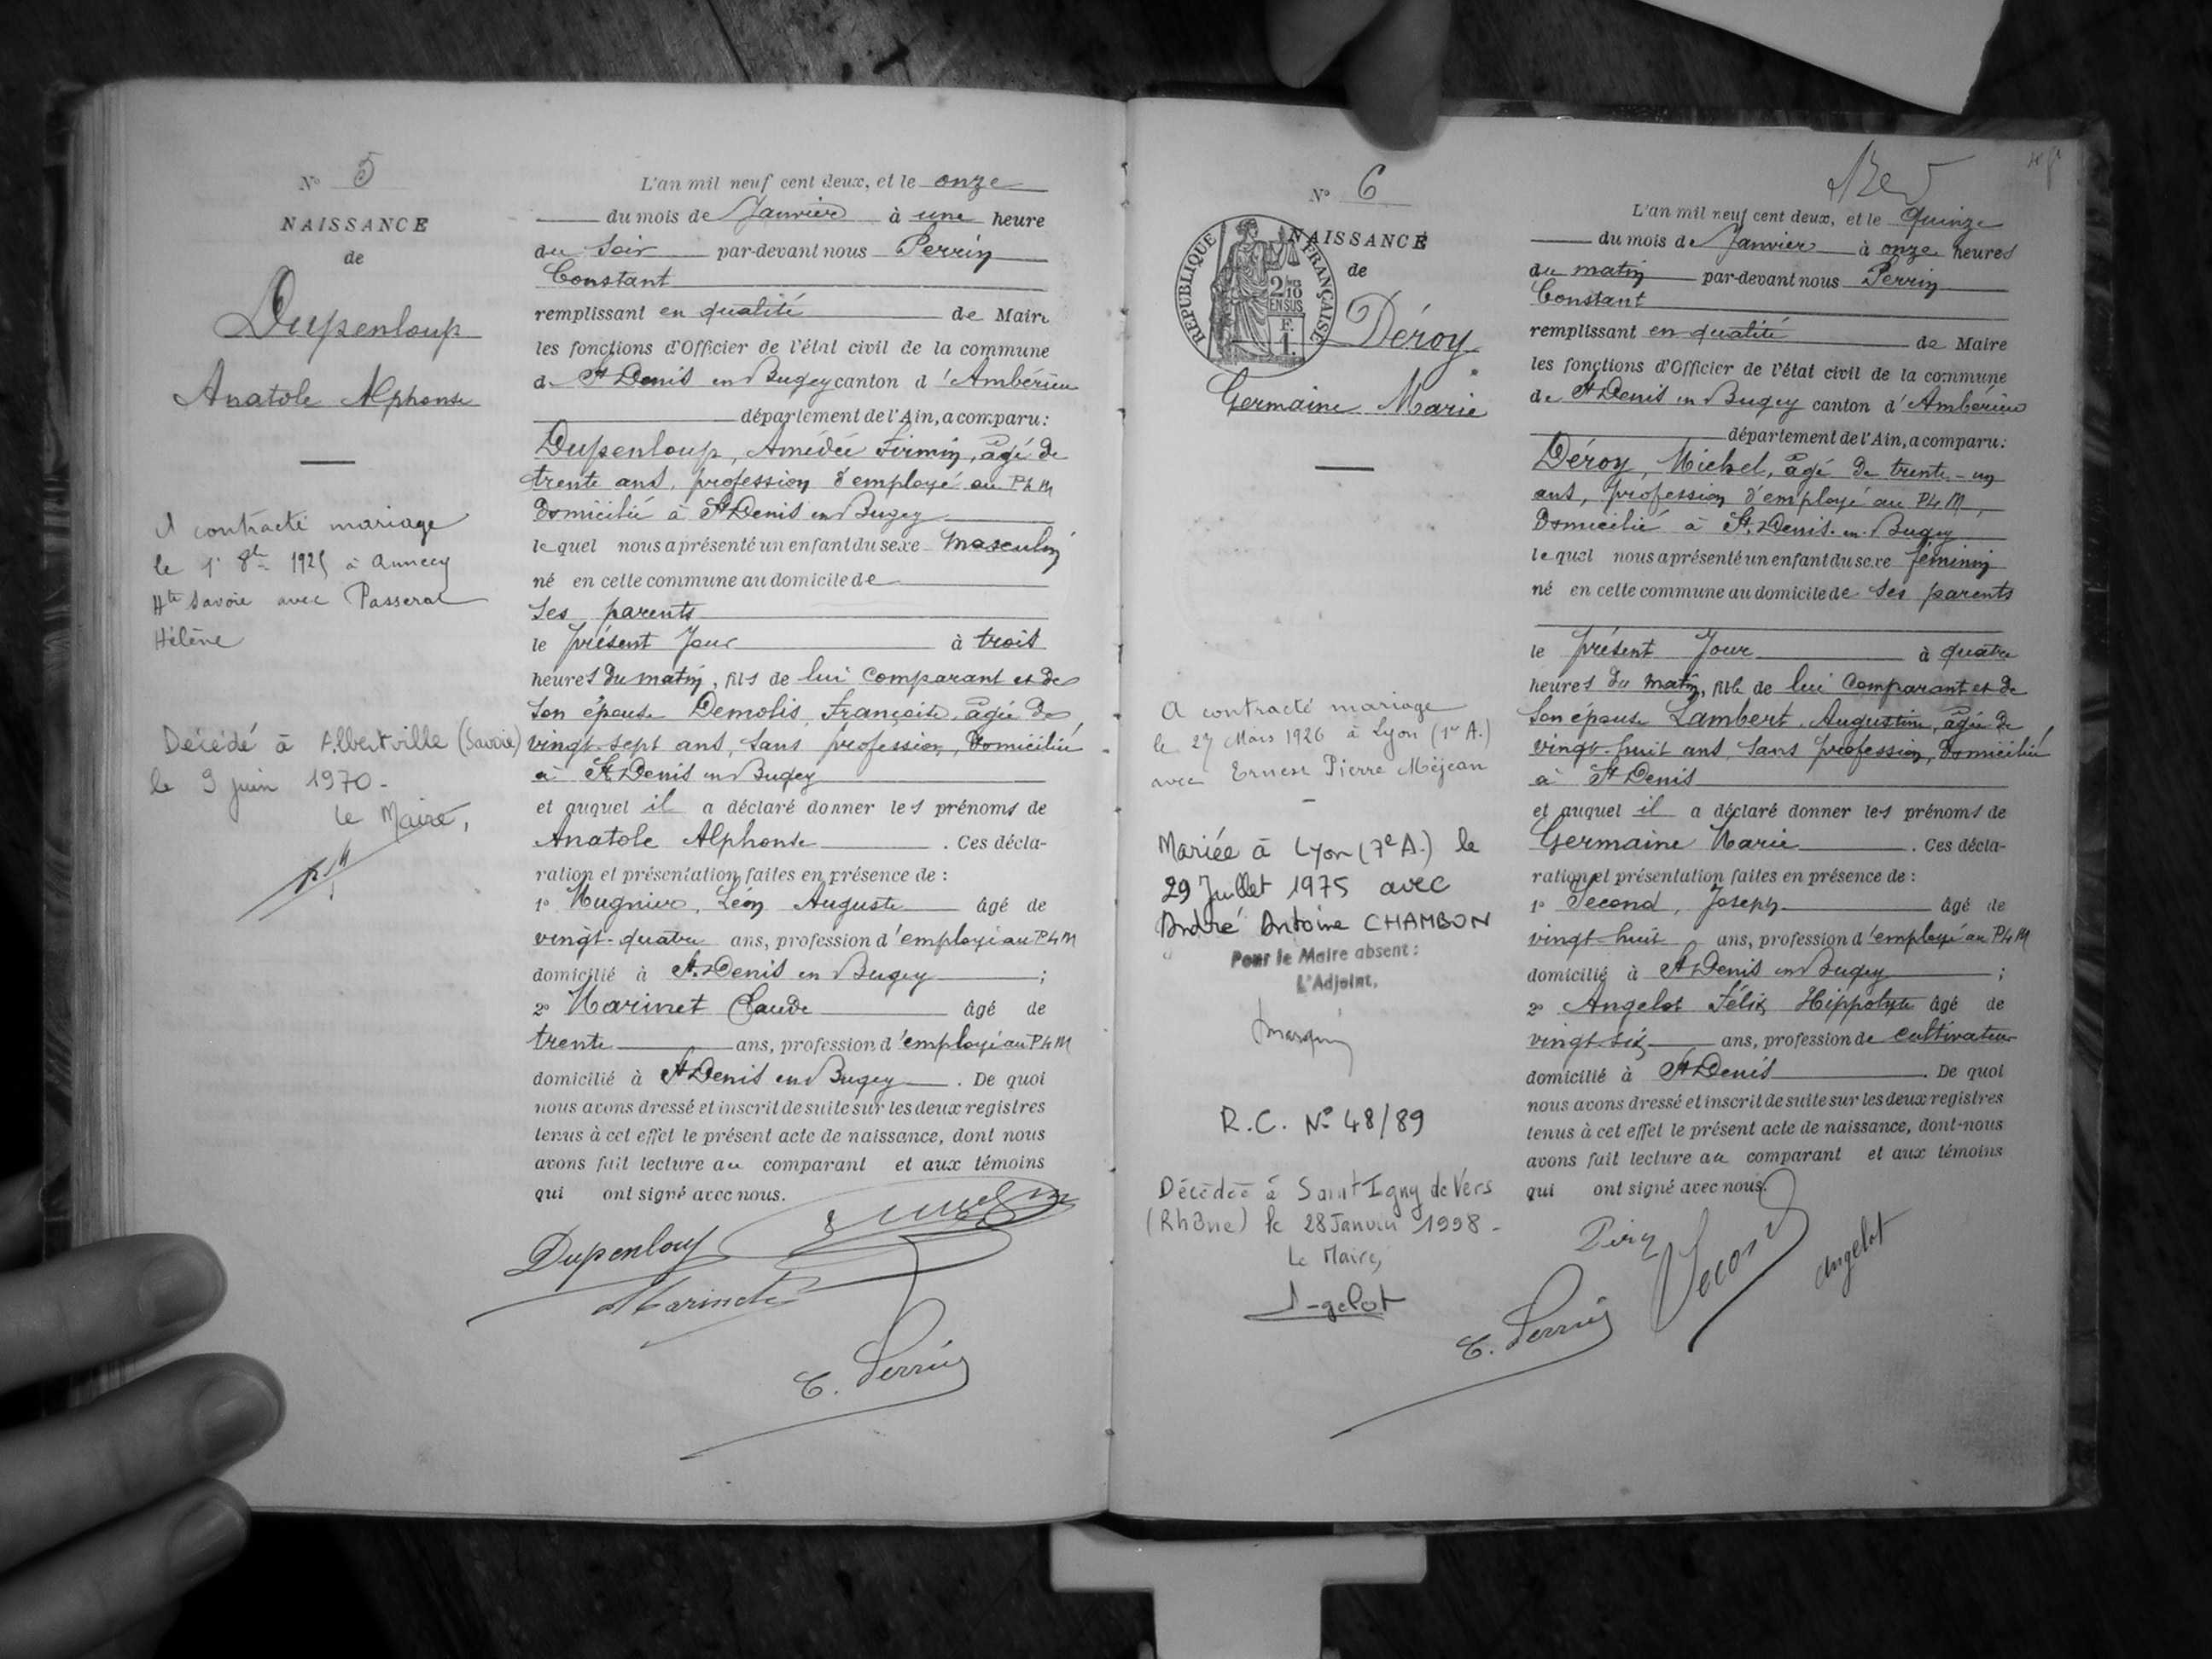 N° 5
NAISSANCE
de
Dupenloup
Anatole Alphonse
A contracté mariage
le 1er 8bre 1925 à Annecy
Hte Savoie avec Passerat
Hélène
Décédé à Albertville (Savoie)
le 9 juin 1970 -
Le Maire,
L'an mil neuf cent deux, et le onze
du mois de Janvier à une heure
du soir par-devant nous Perrin
Constant
remplissant en qualité de Maire
les fonctions d'Officier de l'état civil de la commune
de St Denis en Bugey canton d'Ambérieu
département de l'Ain, a comparu:
Dupenloup, Amédée Firmin, âgé de
trente ans, profession d'employé au PLM
domicilié à St Denis en Bugey
lequel nous a présenté un enfant du sexe masculin
né en cette commune au domicile de
ses parents
le présent jour à trois
heures du matin, fils de lui comparant et de
son épouse Demolis, Françoise, âgée de
vingt-sept ans, sans profession, domiciliée
à St Denis en Bugey
et auquel il a déclaré donner les prénoms de
Anatole Alphonse. Ces décla-
ration et présentation faites en présence de :
1° Mugnier, Léon Auguste âgé de
vingt-quatre ans, profession d'employé au PLM
domicilié à St Denis en Bugey ;
2° Marinet Claude âgé de
trente ans, profession d'employé au PLM
domicilié à St Denis en Bugey. De quoi
nous avons dressé et inscrit de suite sur les deux registres
tenus à cet effet le présent acte de naissance, dont nous
avons fait lecture au comparant et aux témoins
qui ont signé avec nous.
Dupenloup
Marinet
C. Perrin
N° 6
NAISSANCE
de
RÉPUBLIQUE FRANÇAISE
2/10
EN SUS
F.
1.
Déroy
Germaine Marie
A contracté mariage
le 27 Mars 1926 à Lyon (1er A.)
avec Ernest Pierre Méjean
Mariée à Lyon (7e A.) le
29 Juillet 1975 avec
André Antoine CHAMBON
Pour le Maire absent :
L'Adjoint,
R.C. N° 48/89
Décédée à Saint Igny de Vers
(Rhône) le 28 Janvier 1998 -
Le Maire,
Angelot
L'an mil neuf cent deux, et le quinze
du mois de Janvier à onze heures
du matin par-devant nous Perrin
Constant
remplissant en qualité de Maire
les fonctions d'Officier de l'état civil de la commune
de St Denis en Bugey canton d'Ambérieu
département de l'Ain, a comparu:
Déroy, Michel, âgé de trente-un
ans, profession d'employé au PLM,
domicilié à St Denis-en-Bugey
lequel nous a présenté un enfant du sexe féminin
né en cette commune au domicile de ses parents
le présent jour à quatre
heures du matin, fille de lui comparant et de
son épouse Lambert, Augustine, âgée de
vingt-huit ans, sans profession, domiciliée
à St Denis
et auquel il a déclaré donner les prénoms de
Germaine Marie. Ces décla-
ration et présentation faites en présence de :
1° Second, Joseph âgé de
vingt-huit ans, profession d'employé au PLM
domicilié à St Denis en Bugey ;
2° Angelot Félix Hippolyte âgé de
vingt-six ans, profession de cultivateur
domicilié à St Denis. De quoi
nous avons dressé et inscrit de suite sur les deux registres
tenus à cet effet le présent acte de naissance, dont nous
avons fait lecture au comparant et aux témoins
qui ont signé avec nous.
Second
Angelot
C. Perrin